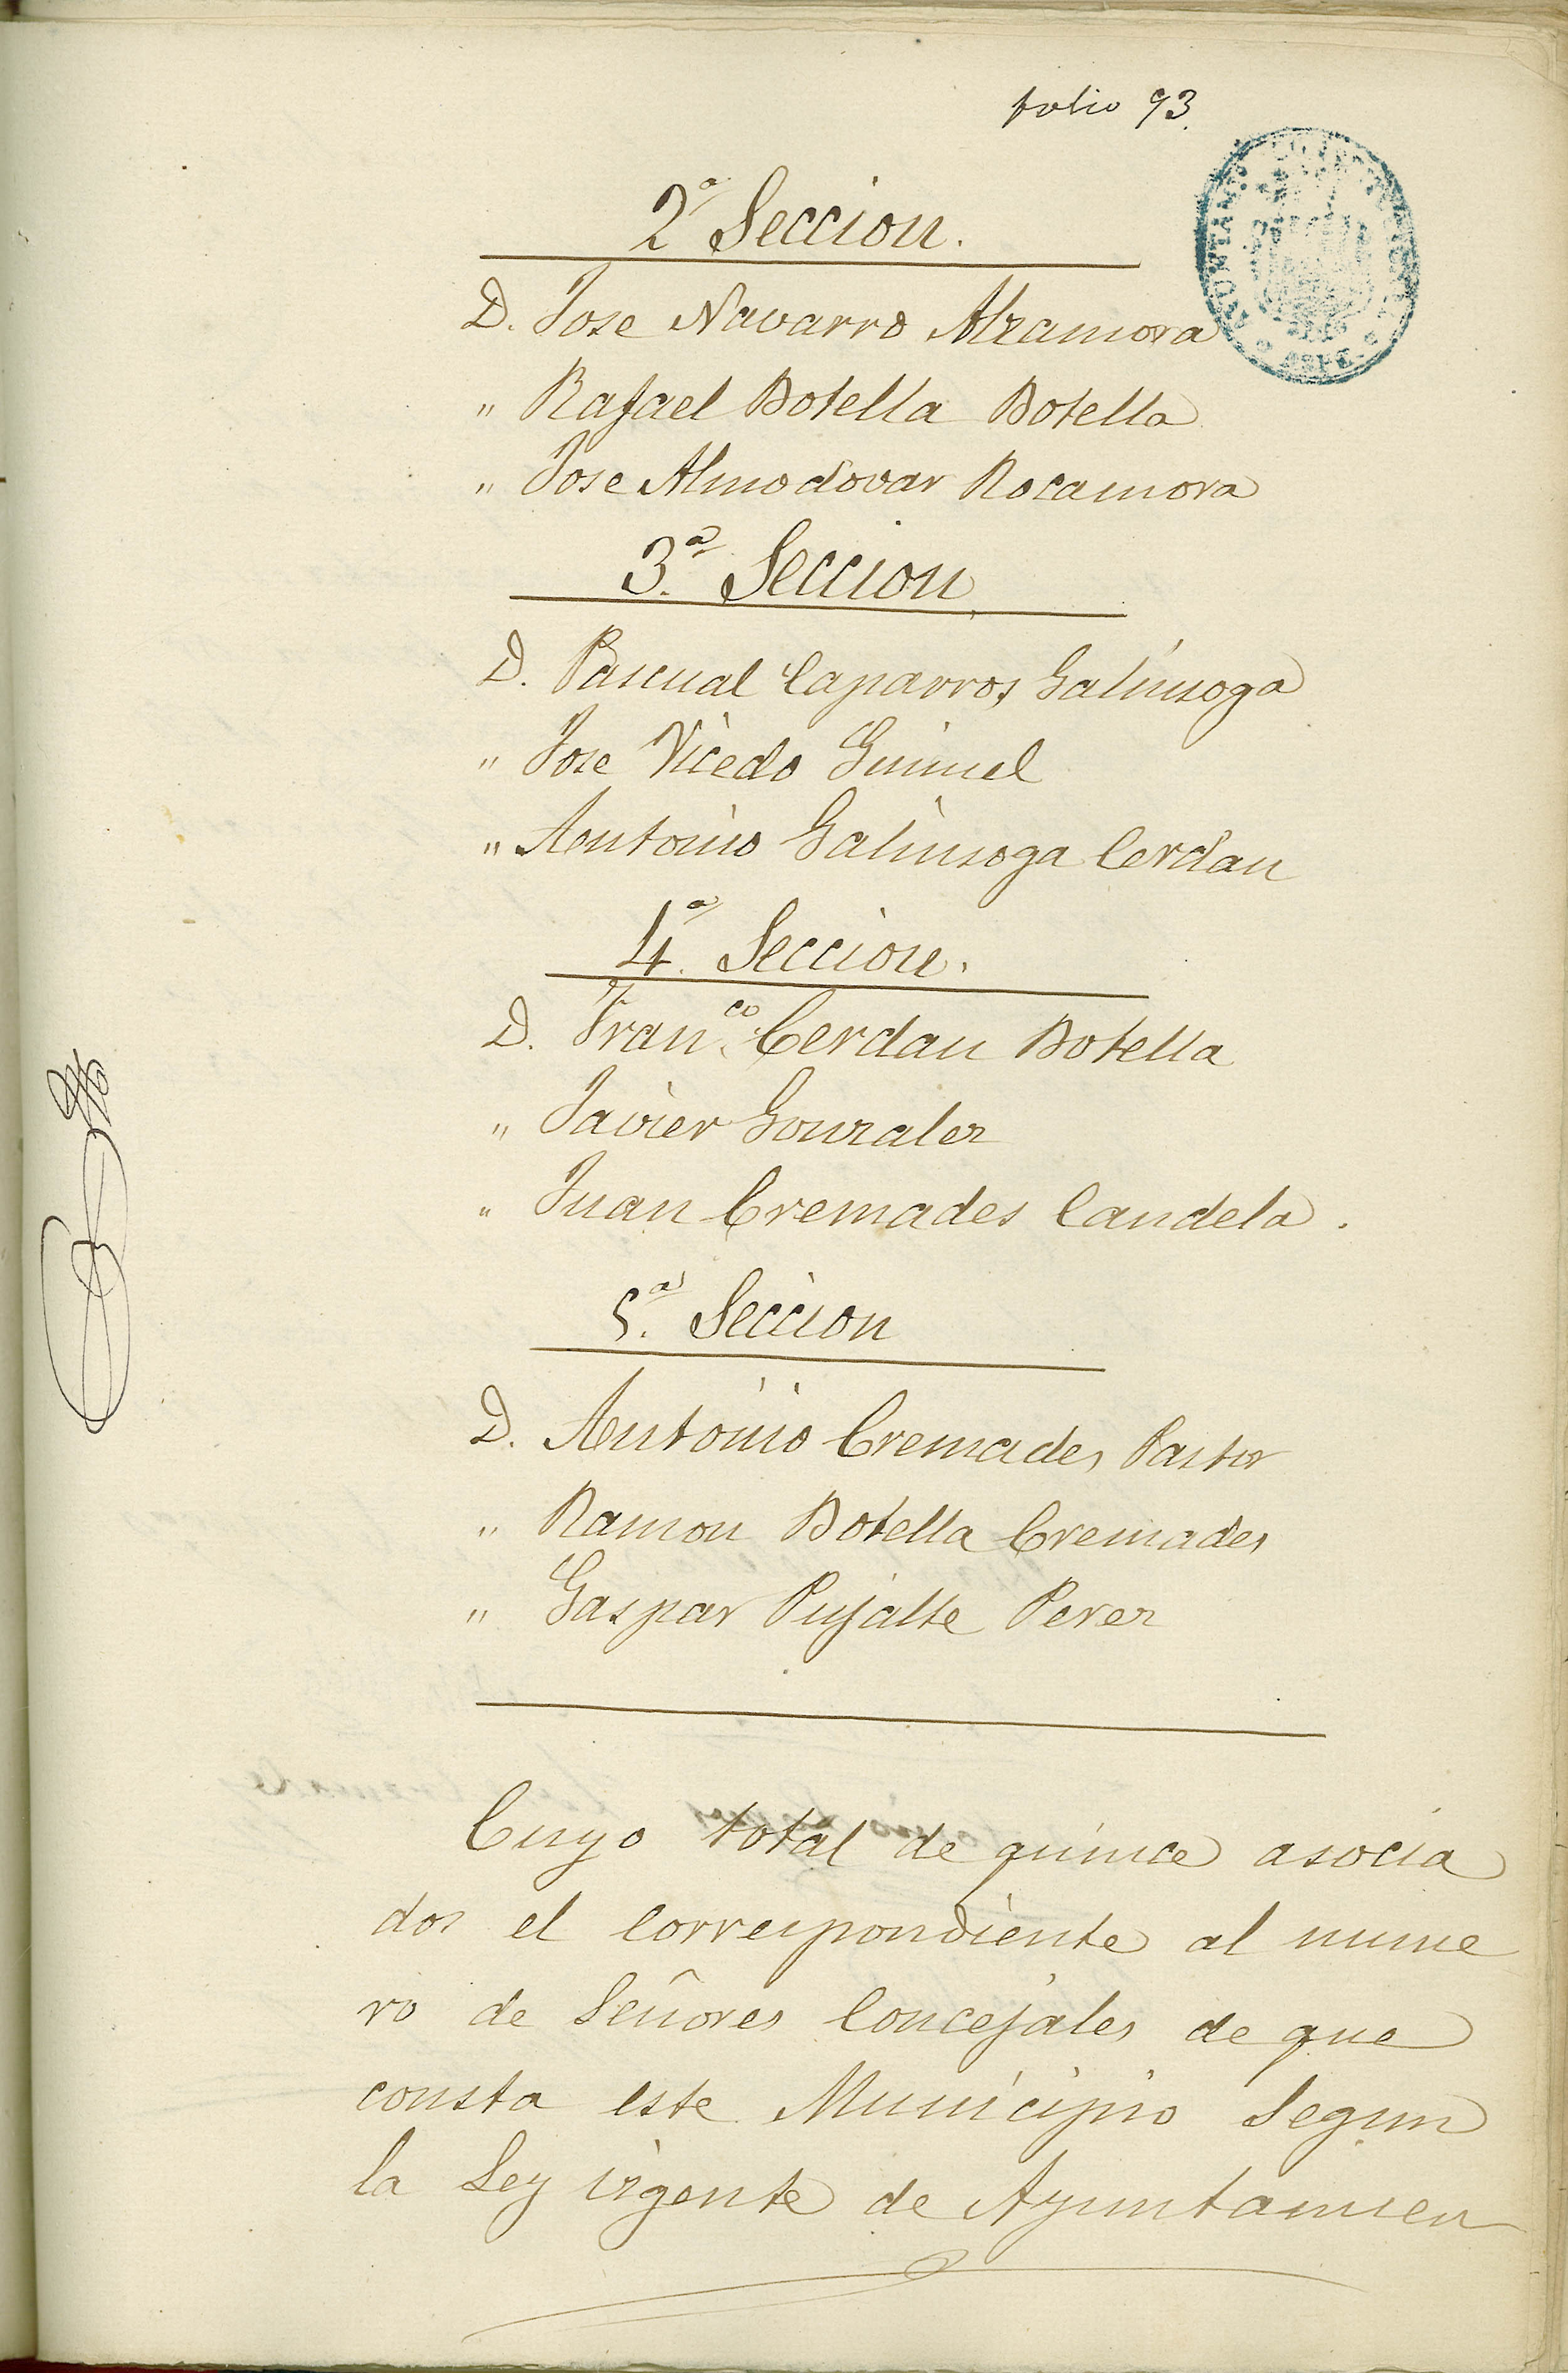 folio 93.
2ª Seccion.
D. Jose Navarro Alzamora
" Rafael Botella Botella
" Jose Almodovar Rocamora
3.ª Seccion
D. Pascual Caparros Galinsoga
" Jose Vicedo Guimel
" Antonio Galinsoga Cerdan
4.ª Seccion.
D. Fran.co Cerdan Botella
" Javier Gonzalez
" Juan Cremades Candela.
5.ª Seccion
D. Antonio Cremades Pastor
" Ramon Botella Cremades
" Gaspar Pujalte Perez
Cuyo total de quince asocia
dos el correspondiente al nume
ro de Señores Concejales de que
consta este Municipio Segun
la Ley vigente de Ayuntamien